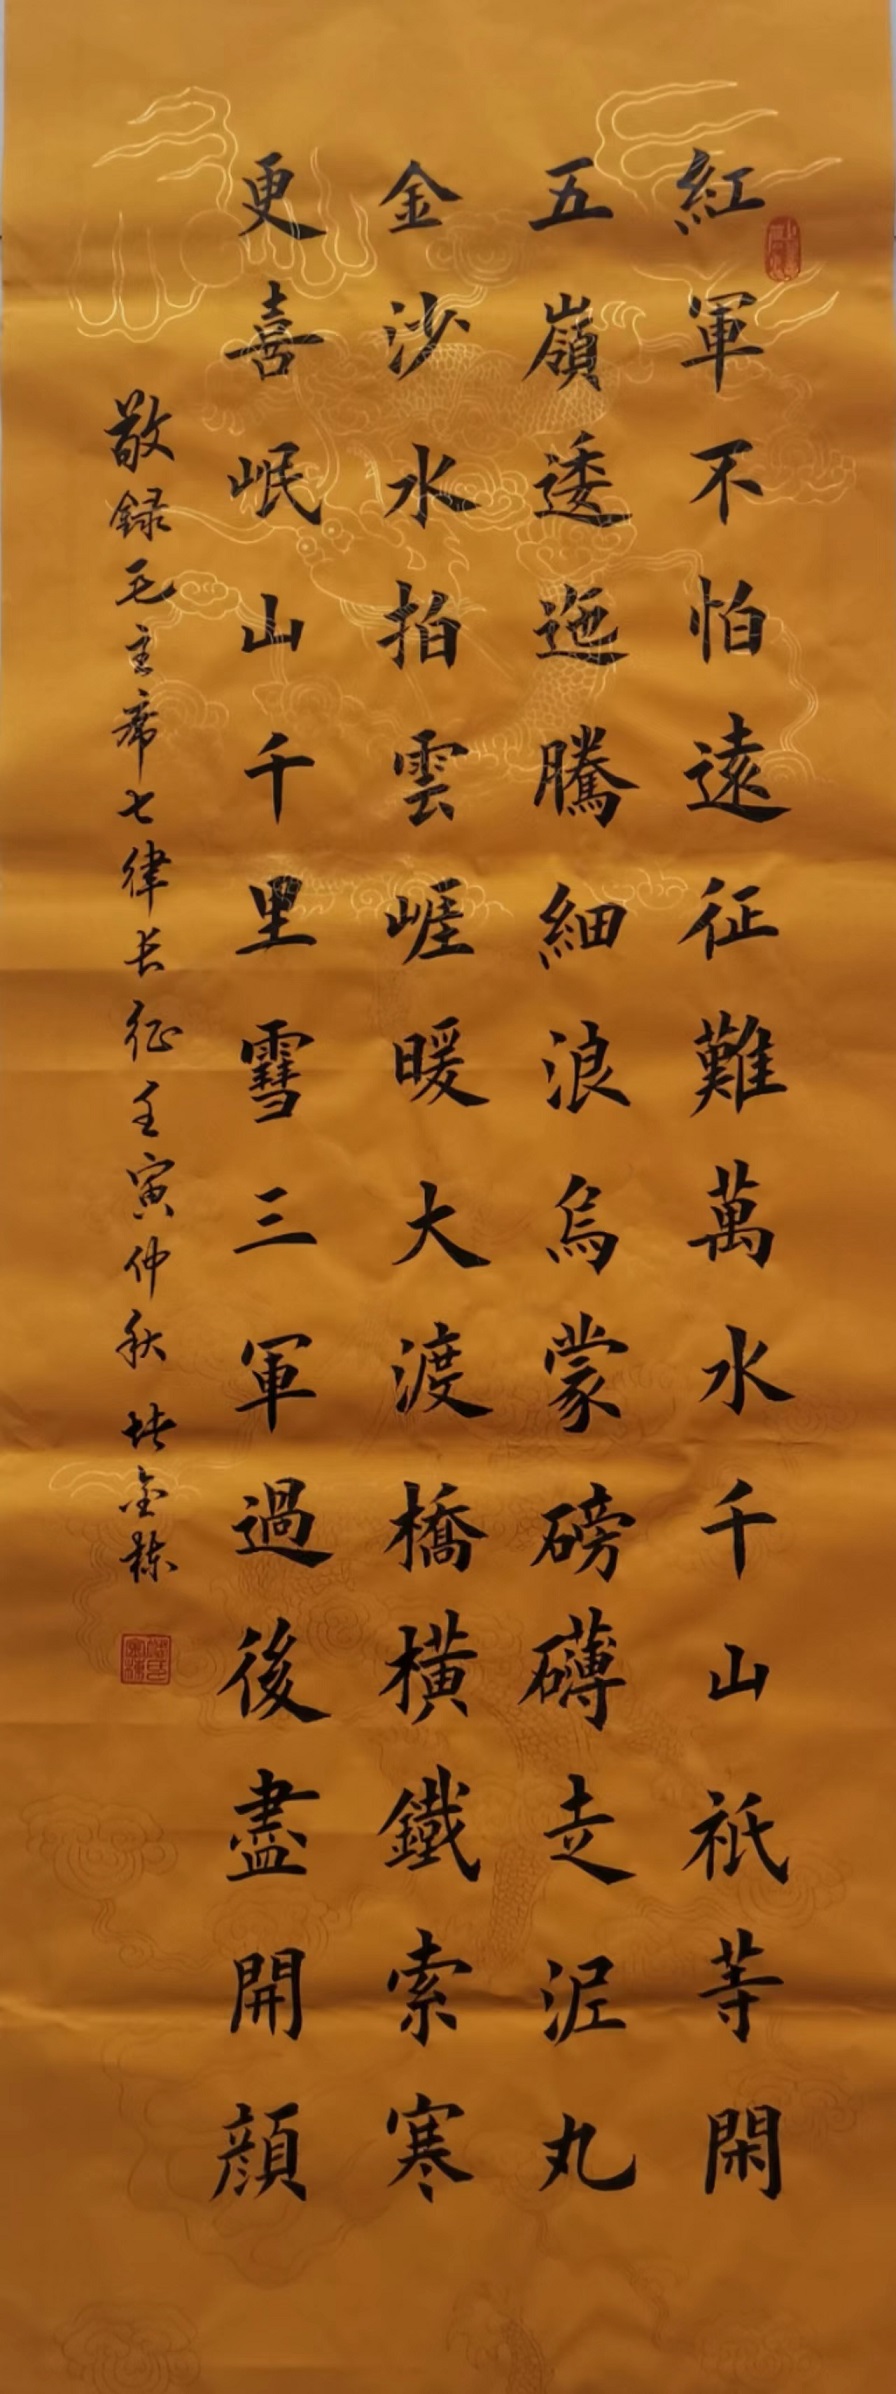 紅軍不怕遠征難萬水千山祇等閑
五嶺逶迤騰細浪烏蒙磅礴走泥丸
金沙水拍雲崖暖大渡橋橫鐵索寒
更喜岷山千里雪三軍過後盡開顏
敬録毛主席七律长征壬寅仲秋 金栋